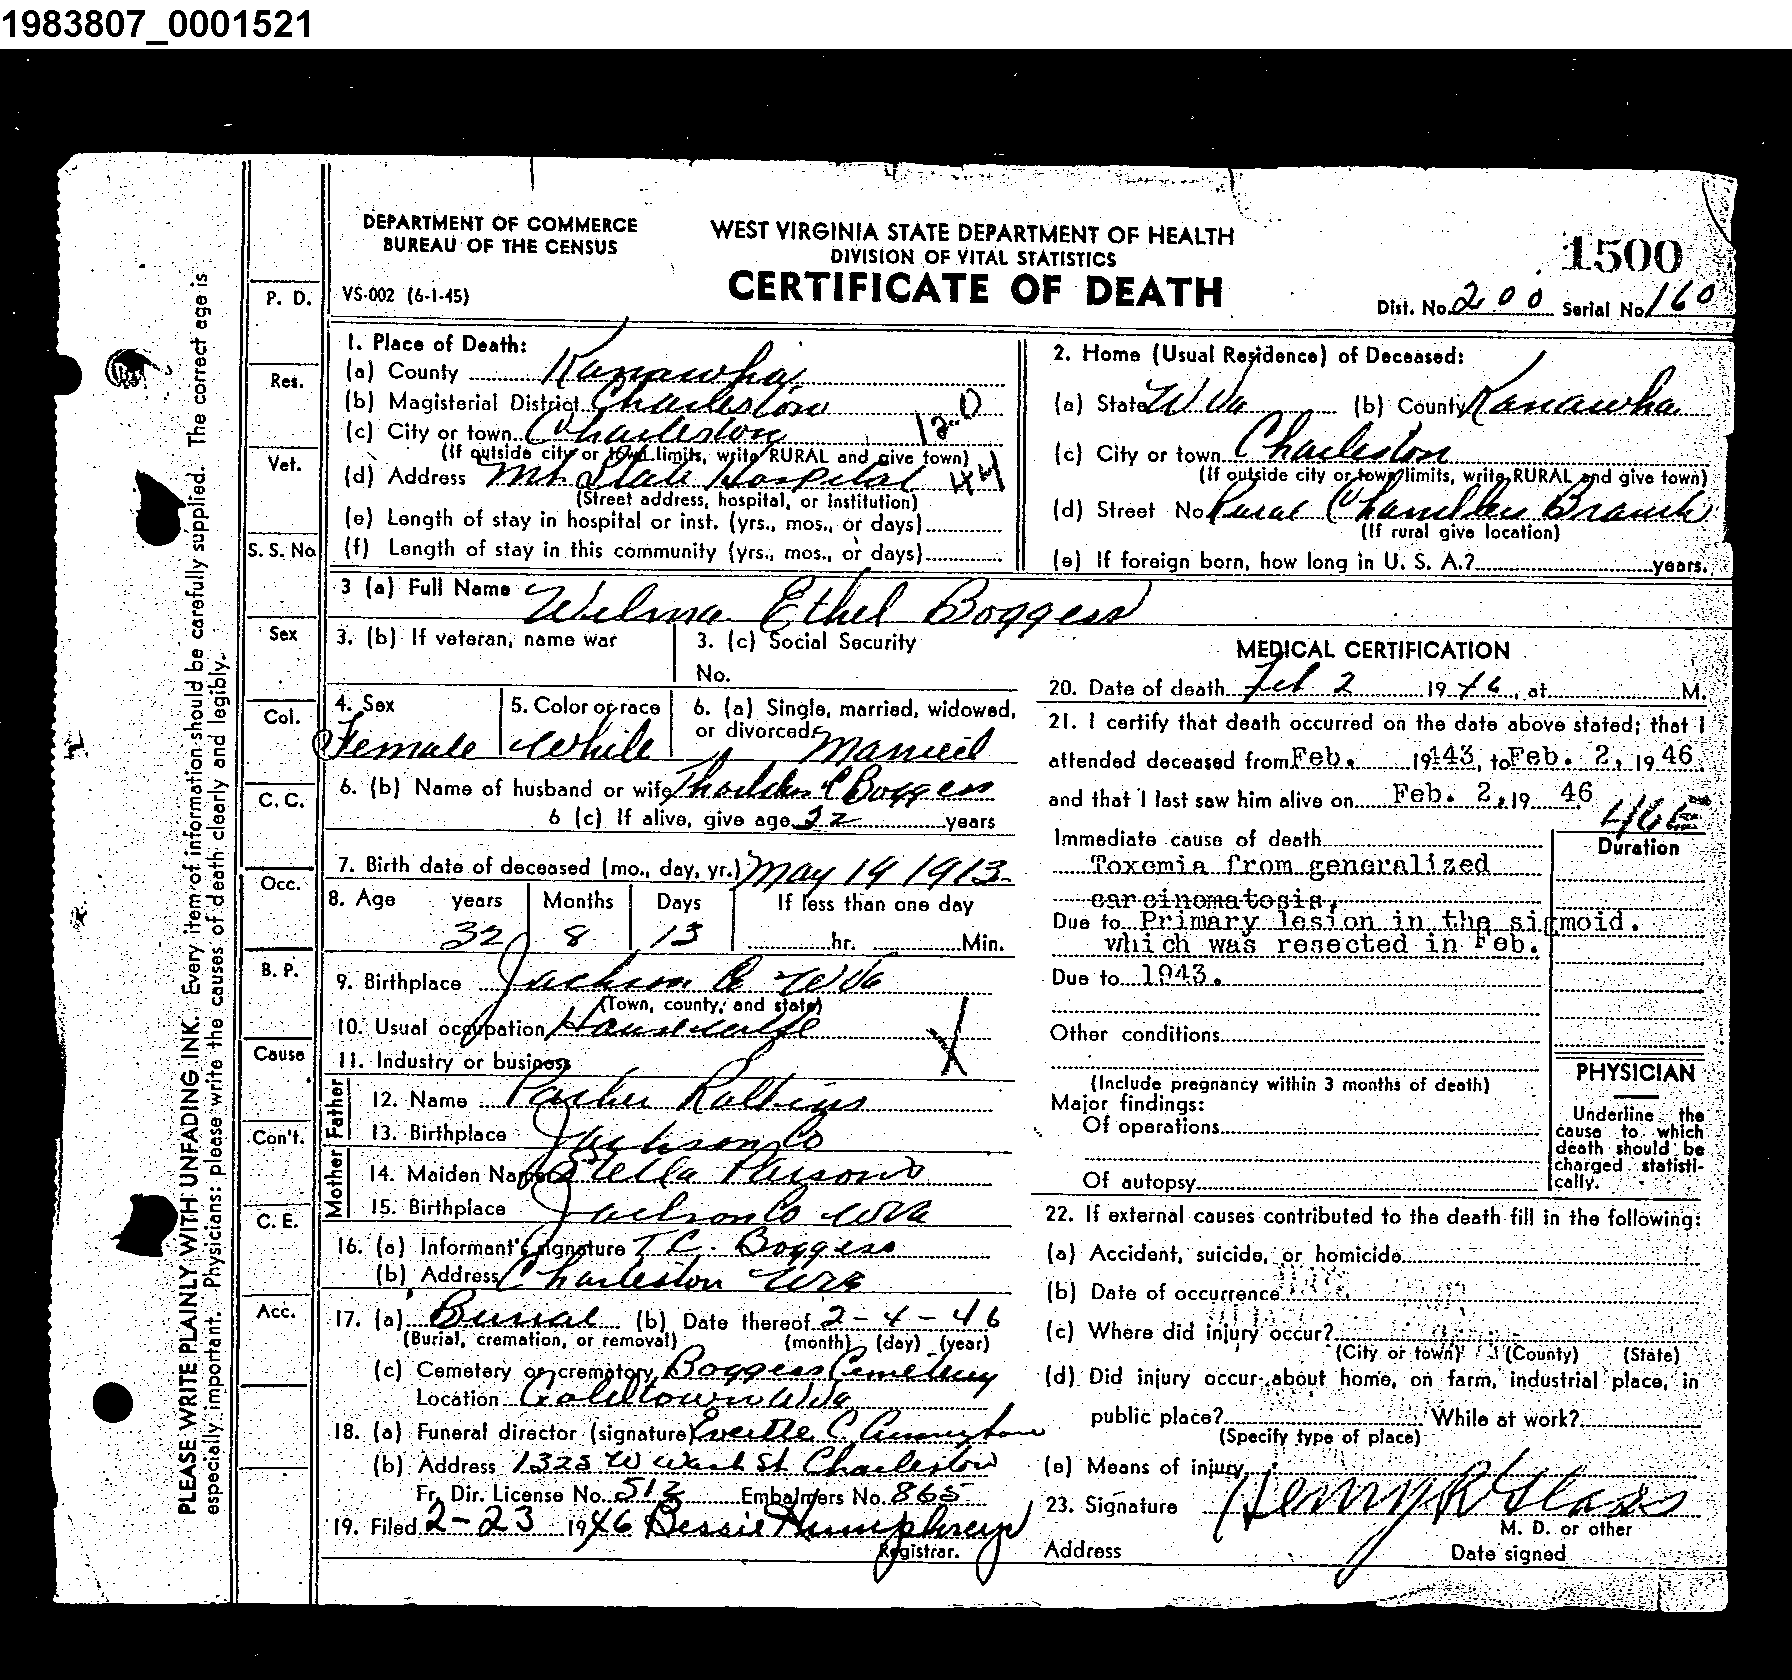 1983807_0001521
DEPARTMENT OF COMMERCE
BUREAU OF THE CENSUS
WEST VIRGINIA STATE DEPARTMENT OF HEALTH
DIVISION OF VITAL STATISTICS
CERTIFICATE OF DEATH
1500
VS-002 (6-1-45)
Dist. No. 200 Serial No. 160
PLEASE WRITE PLAINLY WITH UNFADING INK. Every item of information should be carefully supplied. The correct age is
especially important. Physicians: please write the causes of death clearly and legibly.
P. D.
Res.
Vet.
S. S. No
Sex
Col.
C. C.
Occ.
B. P.
Cause
Con't.
C. E.
Acc.
1. Place of Death:
(a) County Kanawha
(b) Magisterial District Charleston
(c) City or town Charleston
120
(If outside city or town limits, write RURAL and give town)
(d) Address Mt. State Hospital 44
(Street address, hospital, or institution)
(e) Length of stay in hospital or inst. (yrs., mos., or days)
(f) Length of stay in this community (yrs., mos., or days)
2. Home (Usual Residence) of Deceased:
(a) State W Va (b) County Kanawha
(c) City or town Charleston
(If outside city or town limits, write RURAL and give town)
(d) Street No. Rural Chandler Branch
(If rural give location)
(e) If foreign born, how long in U. S. A.? years.
3 (a) Full Name Wilma Ethel Boggess
3. (b) If veteran, name war
3. (c) Social Security
No.
4. Sex
Female
5. Color or race
White
6. (a) Single, married, widowed,
or divorced Married
6. (b) Name of husband or wife C Boggess
6 (c) If alive, give age 32 years
7. Birth date of deceased (mo., day, yr.) May 19 1913
8. Age years Months Days If less than one day
32 8 13 hr. Min.
9. Birthplace Jackson Co W Va
(Town, county, and state)
10. Usual occupation Housewife
11. Industry or business
Father
12. Name Parker Rollins
13. Birthplace Jackson Co
Mother
14. Maiden Name Stella Parsons
15. Birthplace Jackson Co W Va
16. (a) Informant's signature T C. Boggess
(b) Address Charleston W Va
17. (a) Burial (b) Date thereof 2-4-46
(Burial, cremation, or removal) (month) (day) (year)
(c) Cemetery or crematory Boggess Cemetery
Location Goldtown W Va
18. (a) Funeral director (signature) C Cunningham
(b) Address 1325 W Wash St Charleston
Fr. Dir. License No. 512 Embalmers No. 865
19. Filed 2-23 1946 Bessie Humphreys
Registrar.
MEDICAL CERTIFICATION
20. Date of death Feb 2 1946, at M.
21. I certify that death occurred on the date above stated; that I
attended deceased from Feb. 1943, to Feb. 2, 1946
and that I last saw him alive on Feb. 2, 19 46
46E
Immediate cause of death
Duration
Toxemia from generalized
carcinomatosis,
Due to Primary lesion in the sigmoid.
which was resected in Feb.
Due to 1943.
Other conditions
(Include pregnancy within 3 months of death)
Major findings:
Of operations
Of autopsy
PHYSICIAN
Underline the
cause to which
death should be
charged statisti-
cally.
22. If external causes contributed to the death fill in the following:
(a) Accident, suicide, or homicide
(b) Date of occurrence
(c) Where did injury occur?
(City or town) (County) (State)
(d) Did injury occur about home, on farm, industrial place, in
public place? While at work?
(Specify type of place)
(e) Means of injury
23. Signature Henry R Glass
M. D. or other
Address Date signed